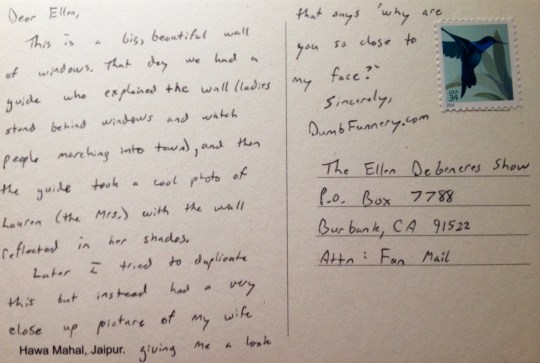 Dear Ellen,
This is a big, beautiful wall
of windows. That day we had a
guide who explained the wall (ladies
stand behind windows and watch
people marching into town), and then
the guide took a cool photo of
Lauren (the Mrs.) with the wall
reflected in her shades.
Later I tried to duplicate
this but instead had a very
close up picture of my wife
Hawa Mahal, Jaipur. giving me a look
that says "why are
you so close to
my face?"
Sincerely,
DumbFunnery.com
USA
34
The Ellen DeGeneres Show
P.O. Box 7788
Burbank, CA 91522
Attn: Fan Mail